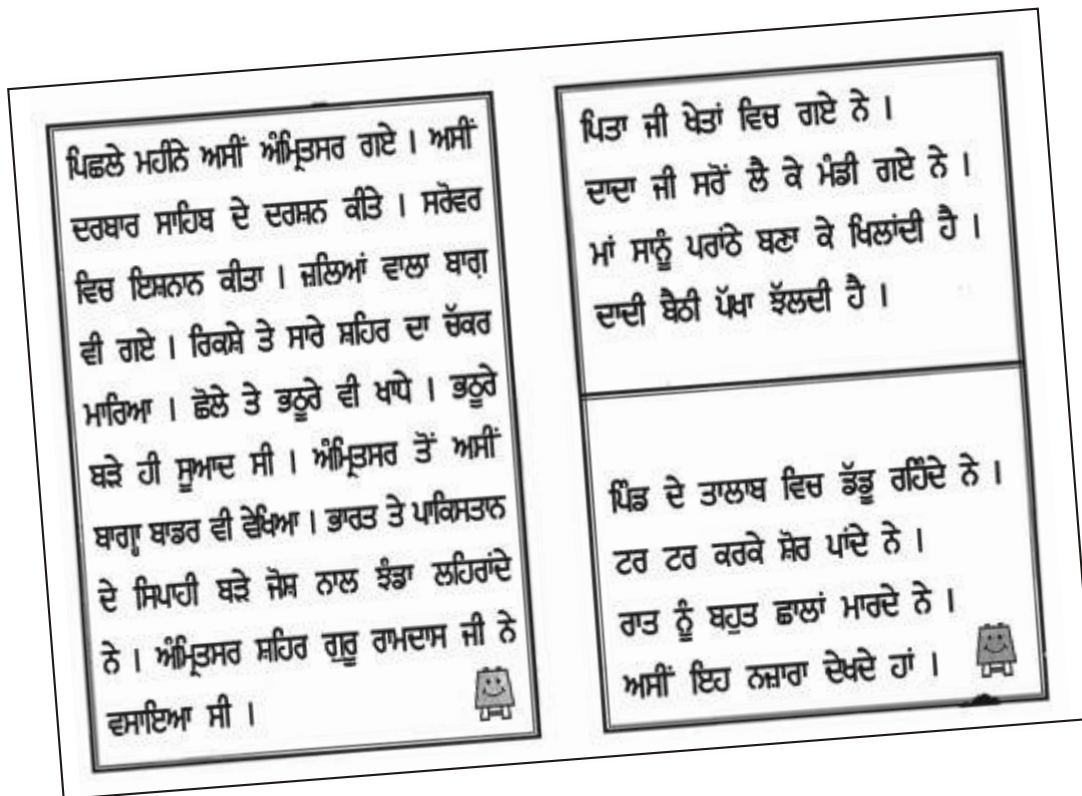 ਪਿਛਲੇ ਮਹੀਨੇ ਅਸੀਂ ਅੰਮ੍ਰਿਤਸਰ ਗਏ । ਅਸੀਂ
ਦਰਬਾਰ ਸਾਹਿਬ ਦੇ ਦਰਸ਼ਨ ਕੀਤੇ । ਸਰੋਵਰ
ਵਿਚ ਇਸ਼ਨਾਨ ਕੀਤਾ । ਜ਼ਲਿਆਂ ਵਾਲਾ ਬਾਗ਼
ਵੀ ਗਏ । ਰਿਕਸ਼ੇ ਤੇ ਸਾਰੇ ਸ਼ਹਿਰ ਦਾ ਚੱਕਰ
ਮਾਰਿਆ । ਛੋਲੇ ਤੇ ਭਠੂਰੇ ਵੀ ਖਾਧੇ । ਭਠੂਰੇ
ਬੜੇ ਹੀ ਸੁਆਦ ਸੀ । ਅੰਮ੍ਰਿਤਸਰ ਤੋਂ ਅਸੀਂ
ਬਾਗ੍ਹਾ ਬਾਡਰ ਵੀ ਵੇਖਿਆ । ਭਾਰਤ ਤੇ ਪਾਕਿਸਤਾਨ
ਦੇ ਸਿਪਾਹੀ ਬੜੇ ਜੋਸ਼ ਨਾਲ ਝੰਡਾ ਲਹਿਰਾਂਦੇ
ਨੇ । ਅੰਮ੍ਰਿਤਸਰ ਸ਼ਹਿਰ ਗੁਰੂ ਰਾਮਦਾਸ ਜੀ ਨੇ
ਵਸਾਇਆ ਸੀ ।
ਪਿਤਾ ਜੀ ਖੇਤਾਂ ਵਿਚ ਗਏ ਨੇ ।
ਦਾਦਾ ਜੀ ਸਰੋਂ ਲੈ ਕੇ ਮੰਡੀ ਗਏ ਨੇ ।
ਮਾਂ ਸਾਨੂੰ ਪਰਾਂਠੇ ਬਣਾ ਕੇ ਖਿਲਾਂਦੀ ਹੈ ।
ਦਾਦੀ ਬੈਠੀ ਪੱਖਾ ਝੱਲਦੀ ਹੈ ।
ਪਿੰਡ ਦੇ ਤਾਲਾਬ ਵਿਚ ਡੱਡੂ ਰਹਿੰਦੇ ਨੇ ।
ਟਰ ਟਰ ਕਰਕੇ ਸ਼ੋਰ ਪਾਂਦੇ ਨੇ ।
ਰਾਤ ਨੂੰ ਬਹੁਤ ਛਾਲਾਂ ਮਾਰਦੇ ਨੇ ।
ਅਸੀਂ ਇਹ ਨਜ਼ਾਰਾ ਦੇਖਦੇ ਹਾਂ ।